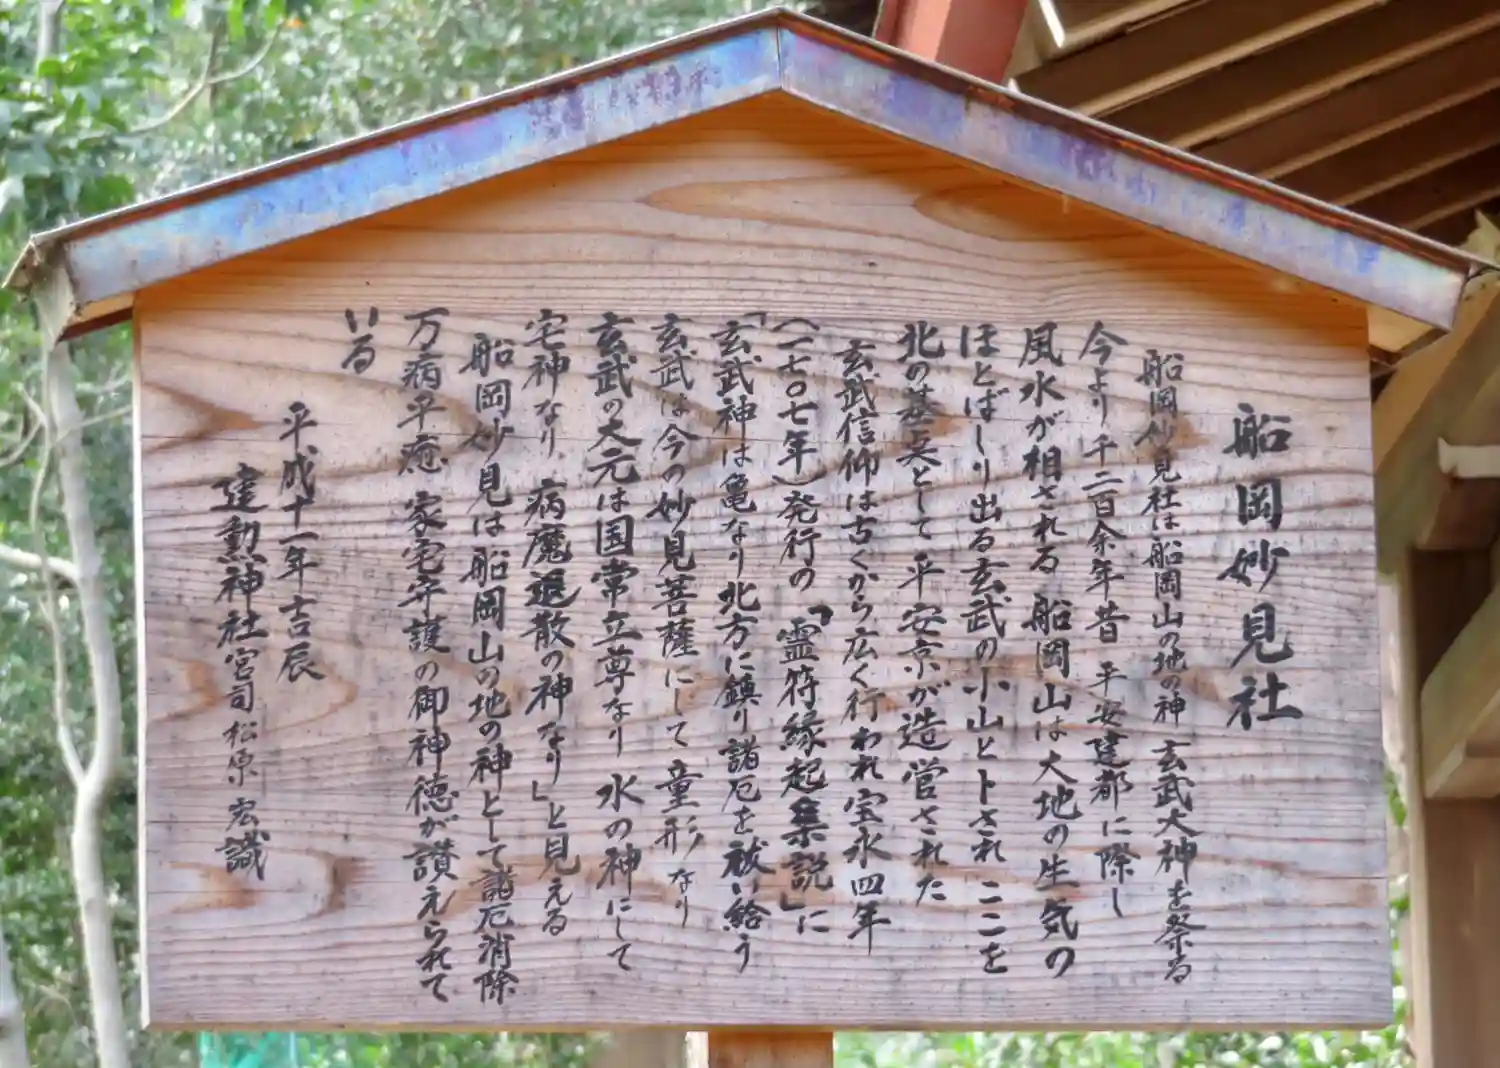 船岡妙見社
船岡妙見社は船岡山の地の神 玄武大神を祭る
今より千二百余年昔 平安建都に際し
風水が相される 船岡山は大地の生気の
ほとばしり出る玄武の小山と卜され ここを
北の基点として 平安京が造営された
玄武信仰は古くから広く行われ 宝永四年
(一七〇七年)発行の「霊符縁起集説」に
「玄武神は亀なり 北方に鎮り 諸厄を祓い給う
玄武は今の妙見菩薩にして 童形なり
玄武の大元は国常立尊なり 水の神にして
宅神なり 病魔退散の神なり」と見える
船岡妙見は船岡山の地の神として諸厄消除
万病平癒 家宅守護の御神徳が讃えられて
いる
平成十一年 吉辰
建勲神社 宮司 松原 宏 識